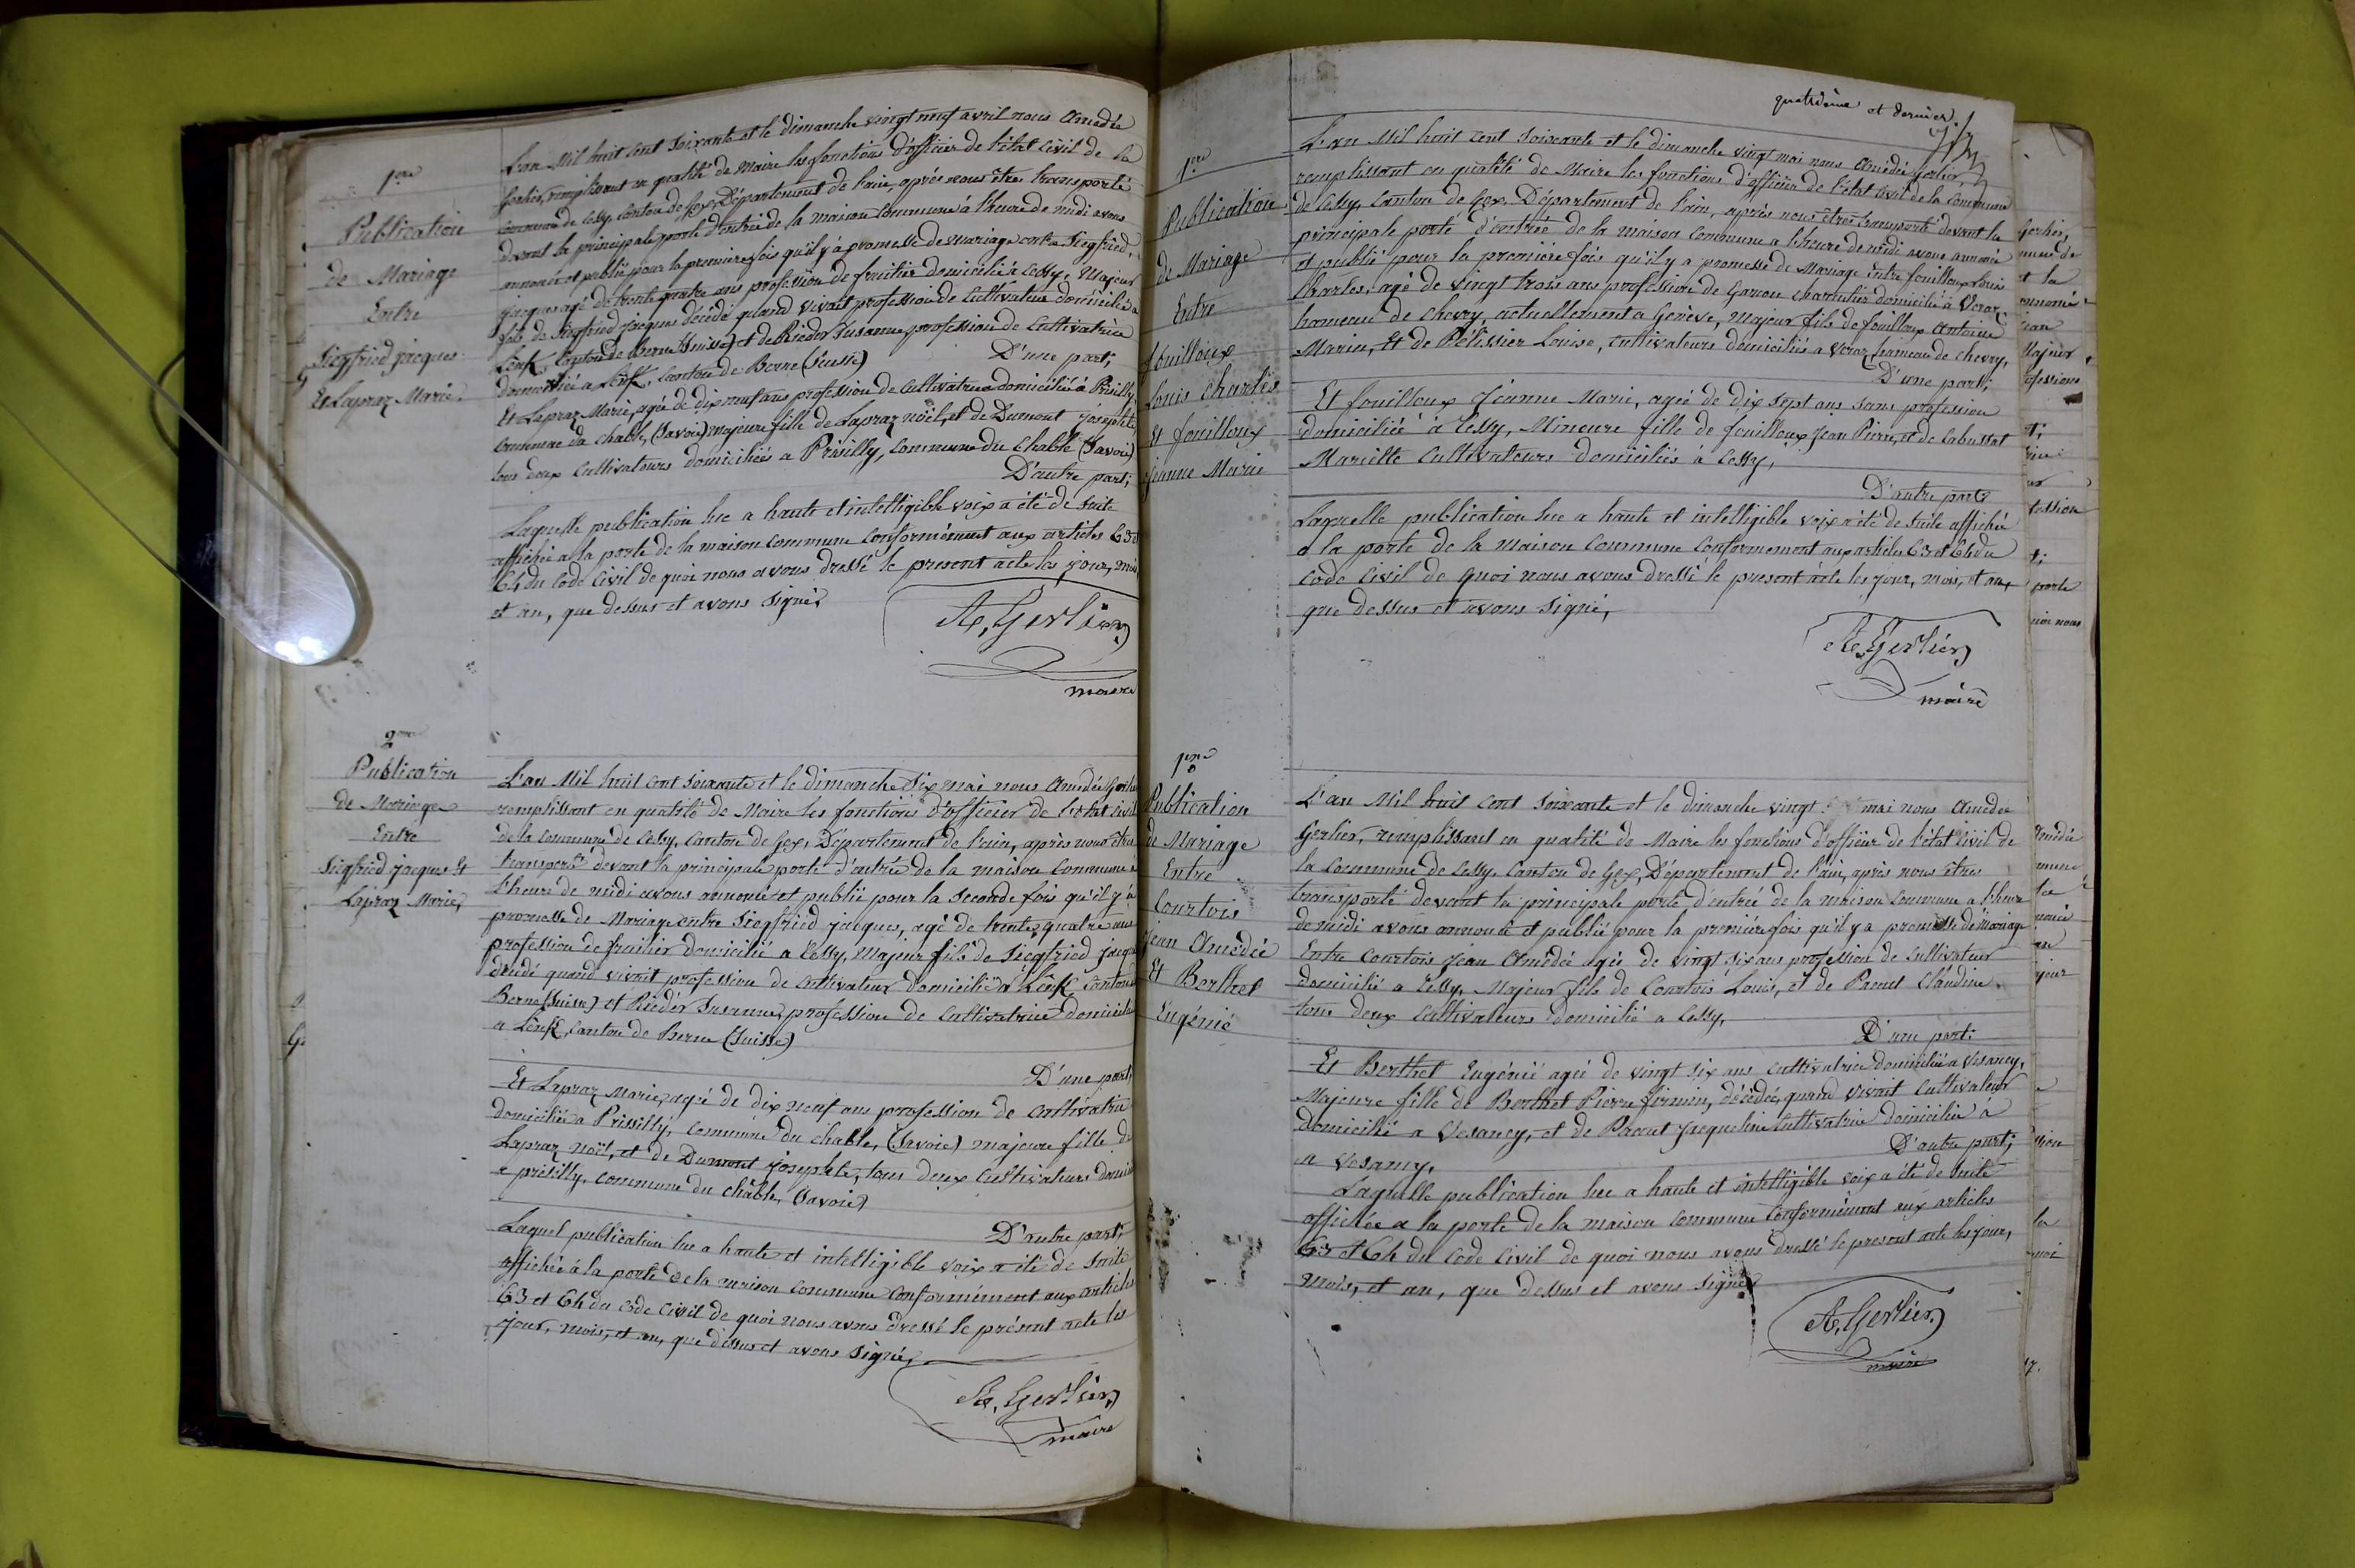 1ère
Publication
de Mariage
Entre
Siegfried jacques
Et Lapraz Marie.
L'an Mil huit cent soixante et le dimanche vingt neuf avril nous Amédée
Gerlier, remplissant en qualité de Maire les fonctions d'officier de l'état civil de la
commune de Cessy, Canton de Gex, Département de l'ain, après nous être transporté
devant la principale porte d'entrée de la maison commune à l'heure de midi avons
annoncé et publié pour la première fois qu'il y a promesse de Mariage entre Siegfried,
jacques agé de trente quatre ans profession de fruitier domicilié à Cessy, Majeur
fils de Siegfried jacques décédé quand vivait profession de Cultivateur domicilié a
Lenk, Canton de Berne (Suisse) et de Rieder Susanne profession de Cultivatrice
domiciliée a Lenk, Canton de Berne (Suisse)
D'une part;
Et Lapraz Marie, agée de dix neuf ans profession de Cultivatrice domiciliée à Présilly,
Commune du Chable, (Savoie) majeure fille de Lapraz noël, et de Dumont josephte,
tous deux Cultivateurs domiciliés a Présilly, Commune du Chable (Savoie)
D'autre part;
Laquelle publication lue a haute et intelligible voix a été de suite
affichée a la porte de la maison commune conformément aux articles 63 et
64 du Code Civil de quoi nous avons dressé le present acte les jour, mois
et an, que dessus et avons signé,
A. Gerlier
maire
2me
Publication
de Mariage
Entre
Siegfried jacques Et
Lapraz Marie,
L'an Mil huit cent soixante et le dimanche Six mai nous Amédée Gerlier
remplissant en qualité de Maire les fonctions d'officier de l'état civil
de la commune de Cessy, Canton de Gex, Département de l'ain, après nous être
transporté devant la principale porte d'entrée de la maison commune à
l'heure de midi avons annoncé et publié pour la seconde fois qu'il y a
promesse de Mariage entre Siegfried jacques, agé de trente quatre ans
profession de fruitier domicilié a Cessy, Majeur fils de Siegfried jacques
décédé quand vivait profession de Cultivateur domicilié à Lenk Canton de
Berne (Suisse) et Rieder Susanne, profession de Cultivatrice domiciliée
a Lenk, Canton de Berne (Suisse)
D'une part,
Et Lapraz Marie, agée de dix neuf ans profession de Cultivatrice
domiciliée a Présilly, Commune du Chable, (Savoie) majeure fille de
Lapraz noël, et de Dumont josephte, tous deux Cultivateurs
a présilly, commune du châble, (Savoie)
D'autre part;
Laquel publication lue a haute et intelligible voix a été de suite
affichée à la porte de la maison commune conformément aux articles
63 et 64 du Code Civil de quoi nous avons dressé le présent acte les
jour, mois, et an, que dessus et avons signé,
A. Gerlier
maire
quatrième et dernier.
1ère
Publication
de Mariage
Entre
fouilloux
Louis Charles
Et fouilloux
jeanne Marie
L'an Mil huit cent soixante et le dimanche vingt mai nous Amédée Gerlier,
remplissant en qualité de Maire les fonctions d'officier de l'état civil de la Commune
de Cessy, Canton de Gex, Département de l'ain, après nous être transporté devant la
principale porte d'entrée de la maison commune a l'heure de midi avons annoncé
et publié pour la première fois qu'il y a promesse de Mariage Entre fouilloux Louis
Charles, agé de vingt trois ans profession de Garçon charcutier domicilié à Veraz,
hameau de chevry, actuellement a Genève, Majeur fils de fouilloux Antoine
Marin, Et de Pélissier Louise, cultivateurs domiciliés a Veraz, hameau de chevry,
D'une part;
Et fouilloux Jeanne Marie, agée de dix sept ans sans profession
domiciliée à Cessy, Mineure fille de fouilloux Jean Pierre, et de Labussat
Mariette Cultivateurs domiciliés à Cessy,
D'autre part;
Laquelle publication lue a haute et intelligible voix a été de suite affichée
a la porte de la maison commune conformement aux articles 63 et 64 du
Code Civil de quoi nous avons dressé le present acte les jour, mois, et an,
que dessus et avons signé,
A. Gerlier
maire
1ère
Publication
de Mariage
Entre
Courtois
Jean Amédée
Et Berthet
Eugénie
L'an Mil huit cent soixante et le dimanche vingt mai nous Amédée
Gerlier, remplissant en qualité de Maire les fonctions d'officier de l'état civil de
la Commune de Cessy, Canton de Gex, Département de l'ain, après nous être
transporté devant la principale porte d'entrée de la maison commune a l'heure
de midi avons annoncé et publié pour la première fois qu'il y a promesse de mariage
Entre Courtois Jean Amédée agé de vingt six ans profession de Cultivateur
domicilié a Cessy, Majeur fils de Courtois Louis, et de Panut Claudine,
tous deux Cultivateurs domicilié a Cessy,
D'une part;
Et Berthet Eugénie agée de vingt six ans cultivatrice domiciliée a Vesancy,
Majeure fille de Berthet Pierre firmin, décédé, quand vivait Cultivateur
domicilié a Vesancy, et de Jacqueline Cultivatrice domiciliée a
a Vesancy,
D'autre part;
Laquelle publication lue a haute et intelligible voix a été de suite
affichée a la porte de la maison commune conformément aux articles
63 et 64 du Code Civil de quoi nous avons dressé le present acte les jour,
mois, et an, que dessus et avons signé
A. Gerlier
maire